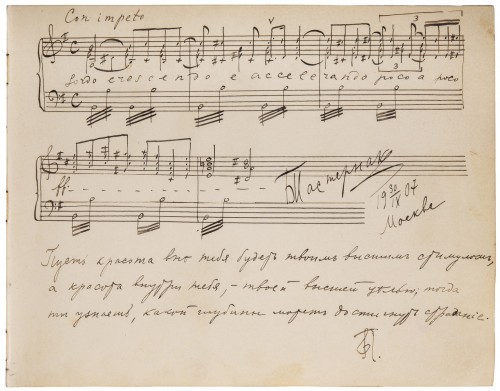 Con impeto
3
crescendo e accelerando poco a poco
3
ff
БПастернак
19 30/IX 07
Москва
Пусть красота вне тебя будетъ твоимъ высшимъ стимуломъ,
а красота внутри тебя, – твоей высшей целью; тогда
ты узнаешь, какой глубины можетъ достигнуть страданіе.
БП.